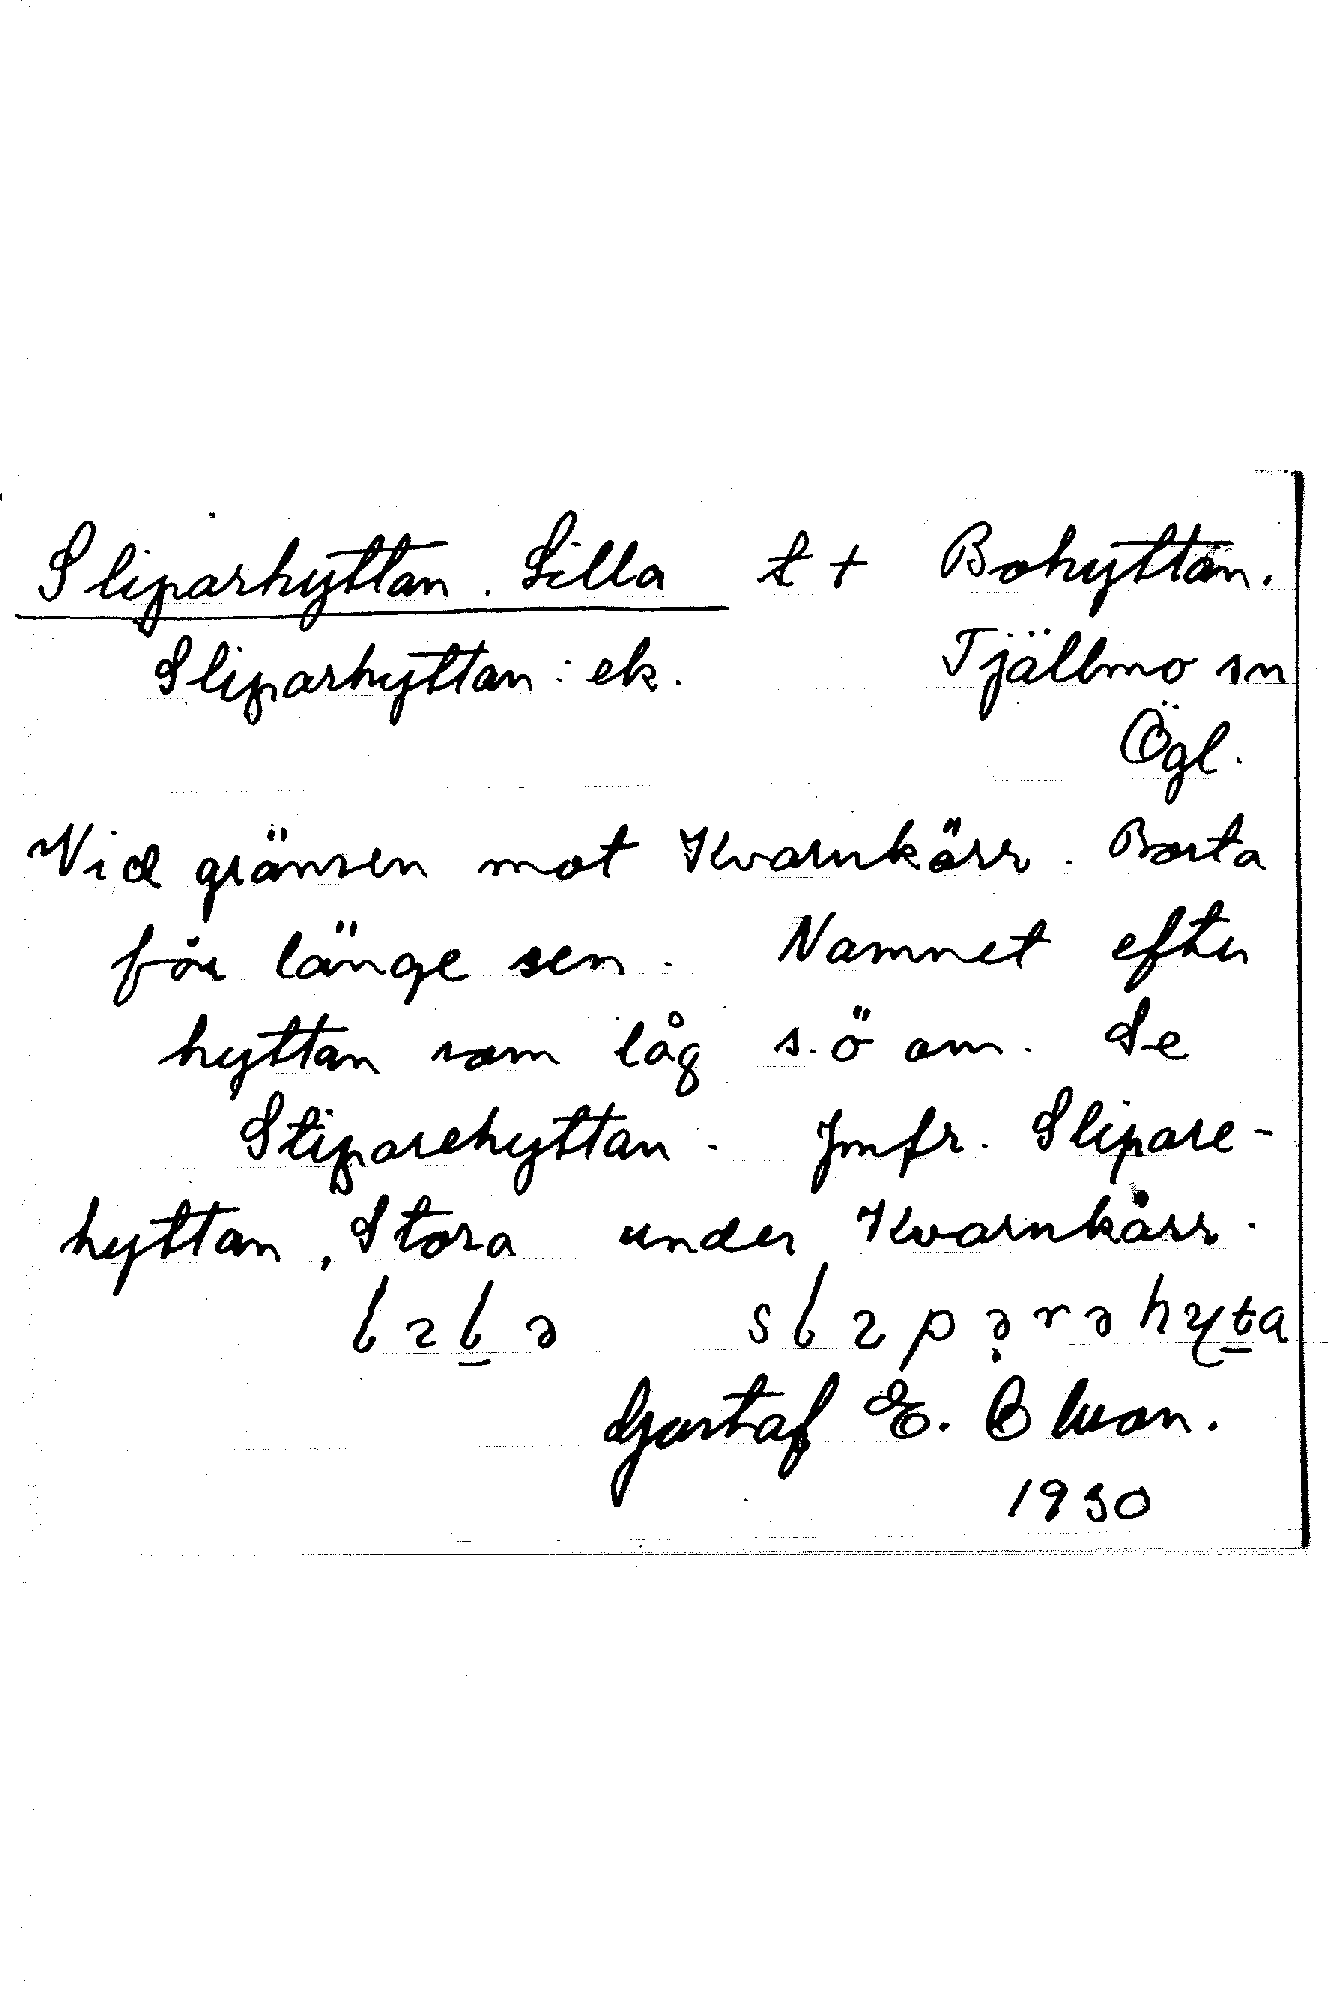 Sliparhyttan. Lilla t + Bohyttan.
Sliparhyttan: ek. Tjällmo sn
Ögl.
Vid gränsen mot Kvarnkärr. Borta
för länge sen. Namnet efter
hyttan som låg s.ö om. Se
Sliparehyttan. Jmfr. Slipare-
hyttan, Stora under Kvarnkärr.
Gustaf E. Olson.
1930